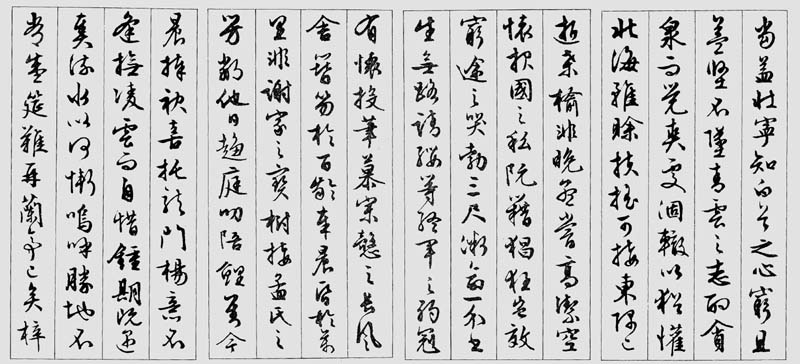 當益壯寧知白首之心窮且
益堅不墜青雲之志酌貪
泉而覺爽處涸轍以猶懽
北海雖賒扶搖可接東隅已
逝桑榆非晚孟嘗高潔空
懷報國之私阮籍猖狂豈效
窮途之哭勃三尺微命一介書
生無路請纓等終軍之弱冠
有懷投筆慕宗愨之長風
舍簪笏於百齡奉晨昏於萬
里非謝家之寶樹接孟氏之
芳鄰他日趨庭叨陪鯉對今
晨捧袂喜托龍門楊意不
逢撫凌雲而自惜鍾期既遇
奏流水以何慚嗚呼勝地不
常盛筵難再蘭亭已矣梓